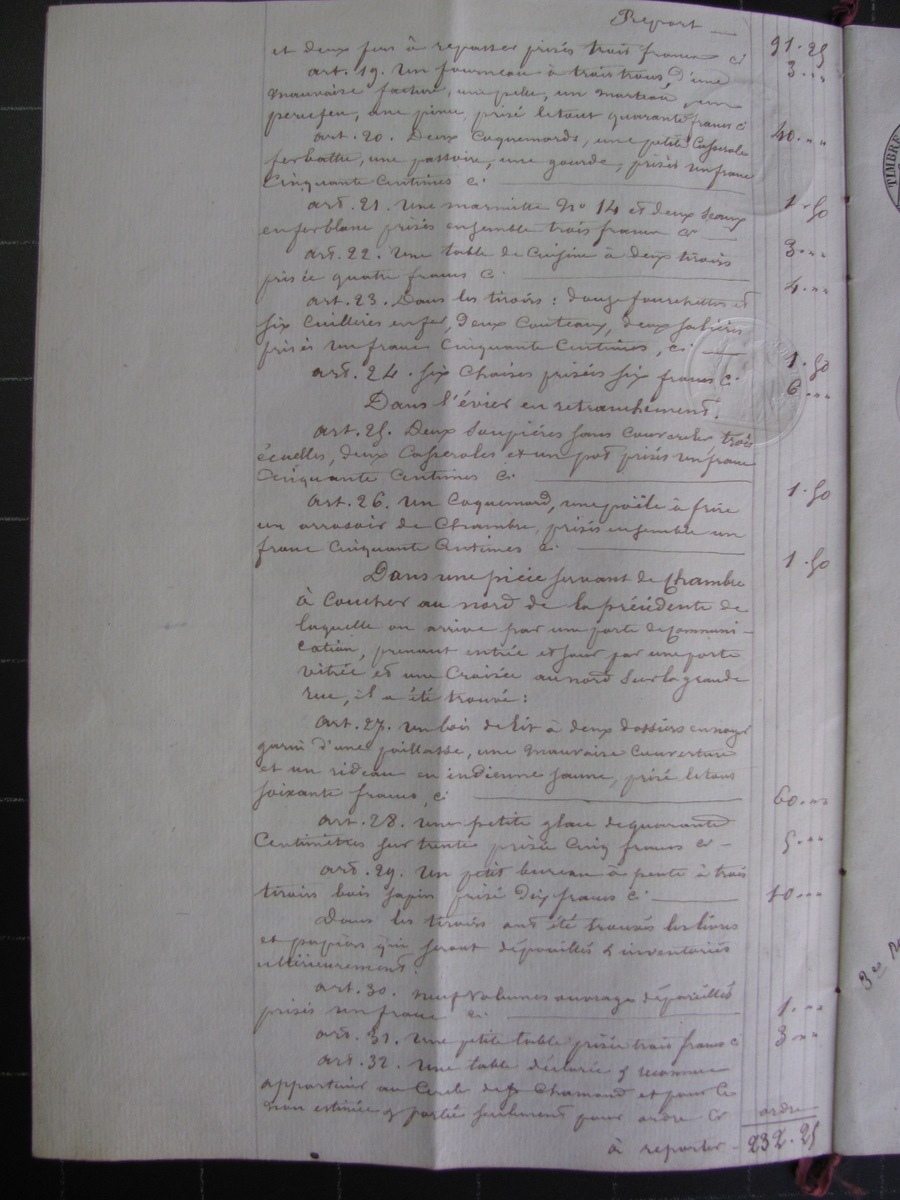 Report — 91.25
et deux fers à repasser prisés trois francs ci 3.""
art. 19. Un fourneau à trois trous, d'une
mauvaise facture, une pelle, un marteau, un
percefeu, une pince, prisé le tout quarante francs ci 40.""
art. 20. Deux Coquemards, une petite Casserole
fer battu, une passoire, une gourde, prisés un franc
Cinquante Centimes ci 1.50
art. 21. Une marmitte No 14 et deux Seaux
en fer blanc prisés ensemble trois francs ci 3.""
art. 22. Une table de Cuisine à deux tiroirs
prisée quatre francs ci 4.""
art. 23. Dans les tiroirs : douze fourchettes et
six Cuillères en fer, deux Couteaux, deux salières
prisés un franc Cinquante Centimes, ci 1.50
art. 24. Six Chaises prisées six francs ci 6.""
Dans l'évier en retranchement.
art. 25. Deux Soupières sans couvercles, trois
écuelles, deux Casseroles et un pot prisés un franc
Cinquante Centimes ci 1.50
art. 26. Un Coquemard, une poële à frire
un arrosoir de Chambre, prisés ensemble un
franc Cinquante Centimes ci 1.50
Dans une pièce servant de Chambre
à Coucher au nord de la précédente de
laquelle on arrive par une porte de Communi-
cation, prenant entrée et jour par une porte
vitrée et une Croisée au nord sur la grande
rue, il a été trouvé :
art. 27. Un bois de lit à deux dossiers en noyer
garni d'une paillasse, une mauvaise Couverture
et un rideau en indienne jaune, prisé le tout
soixante francs, ci 60.""
art. 28. Une petite glace de quarante
Centimètres sur trente prisée Cinq francs ci 5.""
art. 29. Un petit bureau à pente à trois
tiroirs bois sapin prisé dix francs ci 10.""
Dans les tiroirs ont été trouvés les livres
et papiers qui seront dépouillés & inventoriés
ultérieurement.
art. 30. neuf Volumes ouvrages dépareillés
prisés un franc ci 1.""
art. 31. Une petite table prisée trois francs ci 3.""
art. 32. Une table déclarée & reconnue
appartenir au Cercle de Chamand et pour Ce
non estimée & portée seulement pour ordre ci ordre
à reporter — 232.25
TIMBRE